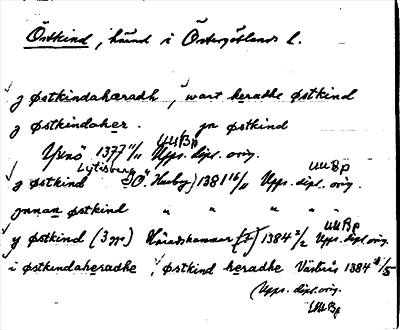 Östkind, härad i Östergötlands l.
j østkindahæradh, wart heradhe østkind
j østkindaher. jn østkind
UUBp
Yxnö 1377 11/11 Upps. dipl. orig.
UUBp
j østkind Husby) 1381 16/11 Upps. dipl. orig.
jnnan østkind " " " "
UUBp
j østkind (3 ggr) 1384 2/2 Upps. dipl. orig.
i østkindaheradhe, østkind heradhe 1384 /5
(Upps. dipl. orig.
UUBp